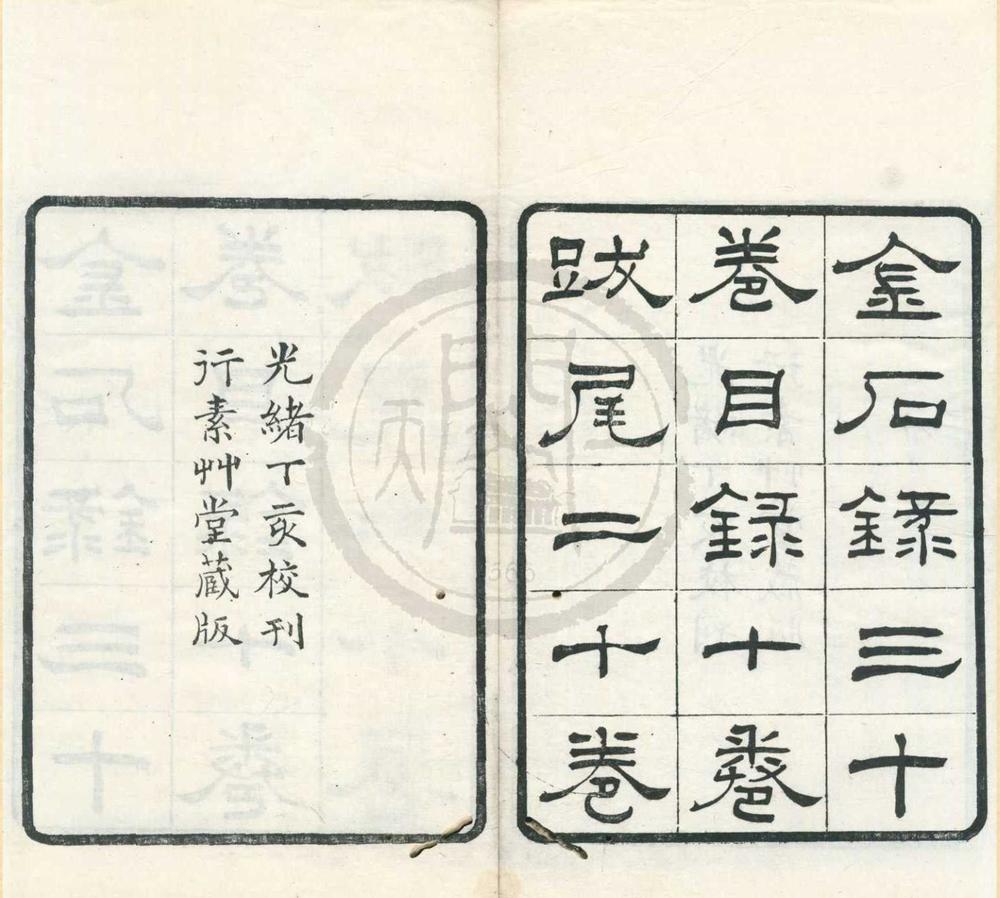 金石錄三十
卷目録十卷
跋尾二十卷
光緒丁亥校刊
行素艸堂藏版